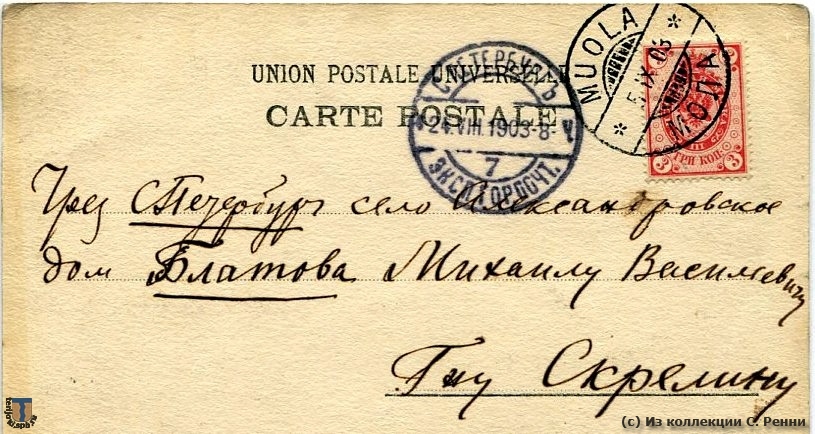 UNION POSTALE UNIVERSELLE
CARTE POSTALE
С.ПЕТЕРБУРГЪ
24.VIII.1903-8-
7
ЭКСП.ГОР.ПОЧТ.
MUOLA
5.IX.03
МОЛА
3 ТРИ КОП. 3
Чрез С.Петербург село Александровское
дом Блатова Михаилу Василиевичу
Гну Скрелину
(c) Из коллекции С. Ренни